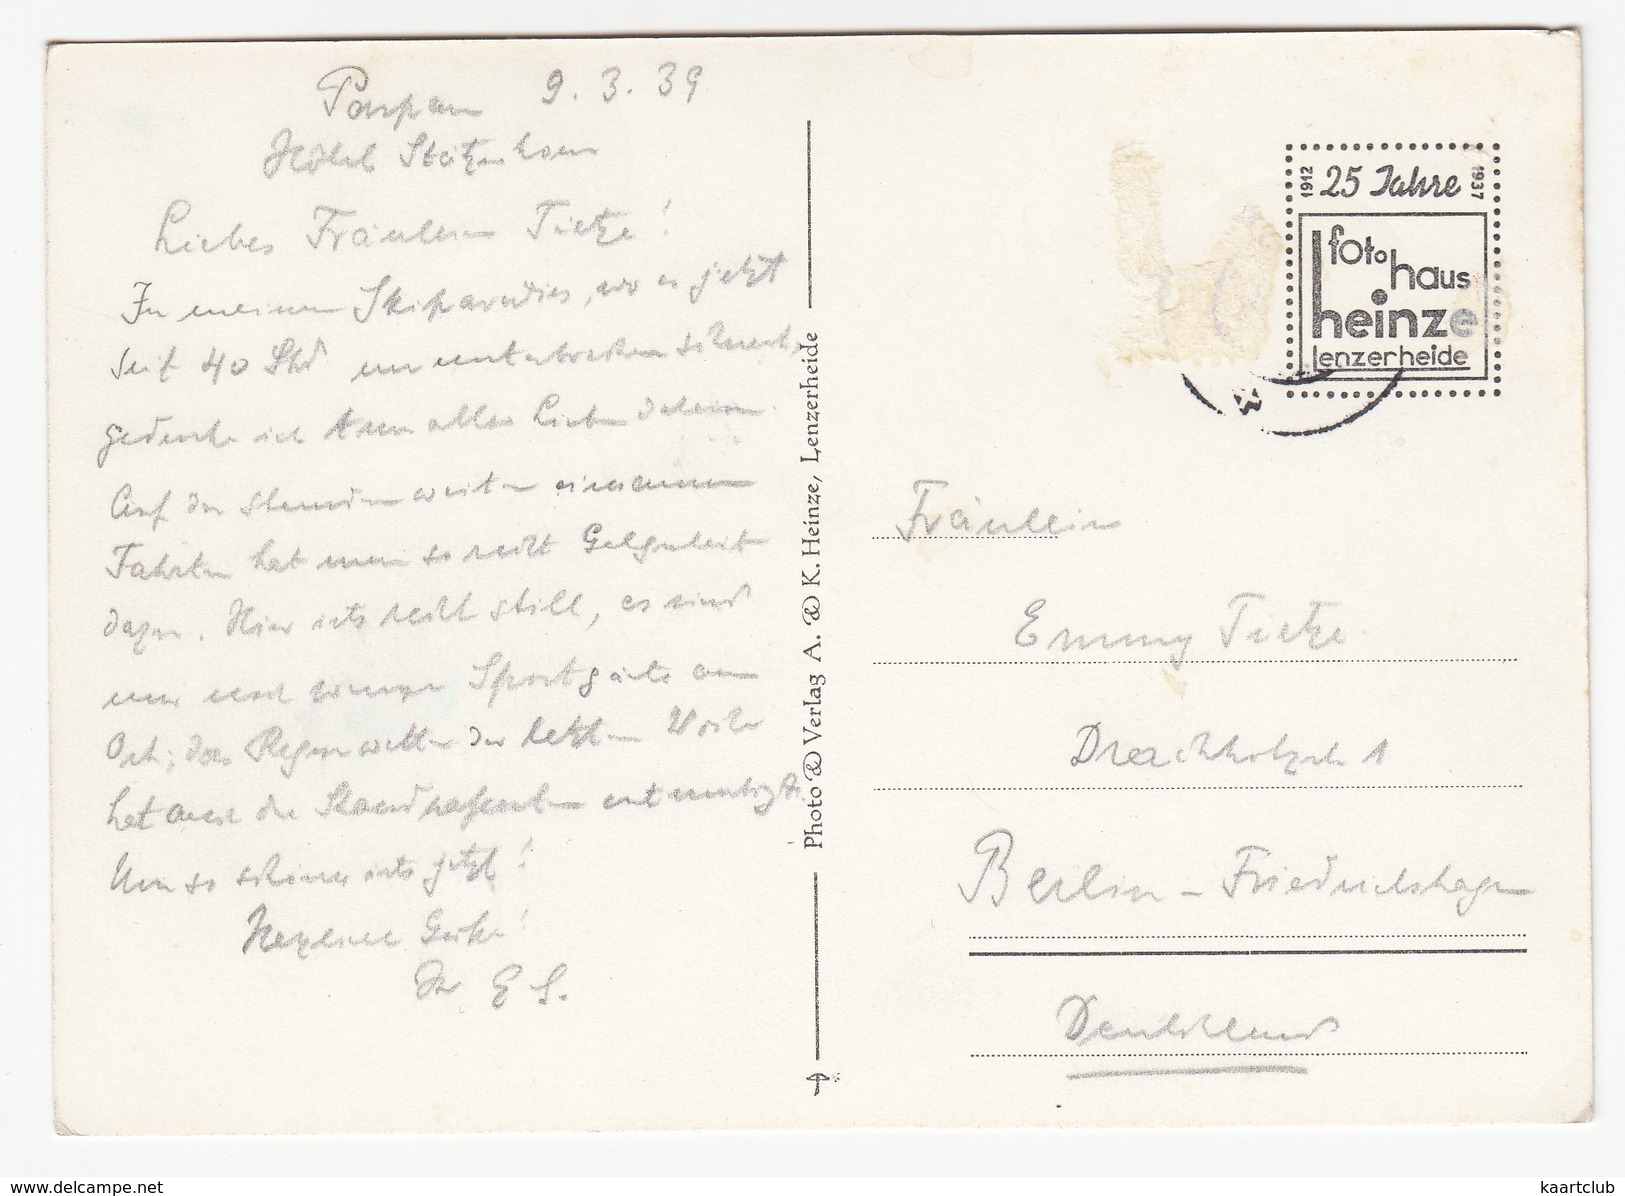 Parpan 9.3.39
Hôtel Stätzerhorn
Liebes Fräulein Tietze!
In meinem Skiparadies, wo es jetzt
seit 40 Std ununterbrochen schneit,
gedenke ich stum aller Lieben daheim.
Auf den stundenweiten einsamen
Fahrten hat man so recht Gelegenheit
dazu. Hier ists recht still, es sind
nur noch wenige Sportgäste am
Ort; das Regenwetter der letzten Woche
hat auch die entmutigt.
Um so schöner ists jetzt!
Herzliche Grüße!
Ihr E S.
Photo & Verlag A. & K. Heinze, Lenzerheide
1912 25 Jahre 1937
foto
haus
heinze
lenzerheide
Fräulein
Emmy Tietze
Drachholzstr 1
Berlin - Friedrichshagen
Deutschland
www.delcampe.net
kaartclub